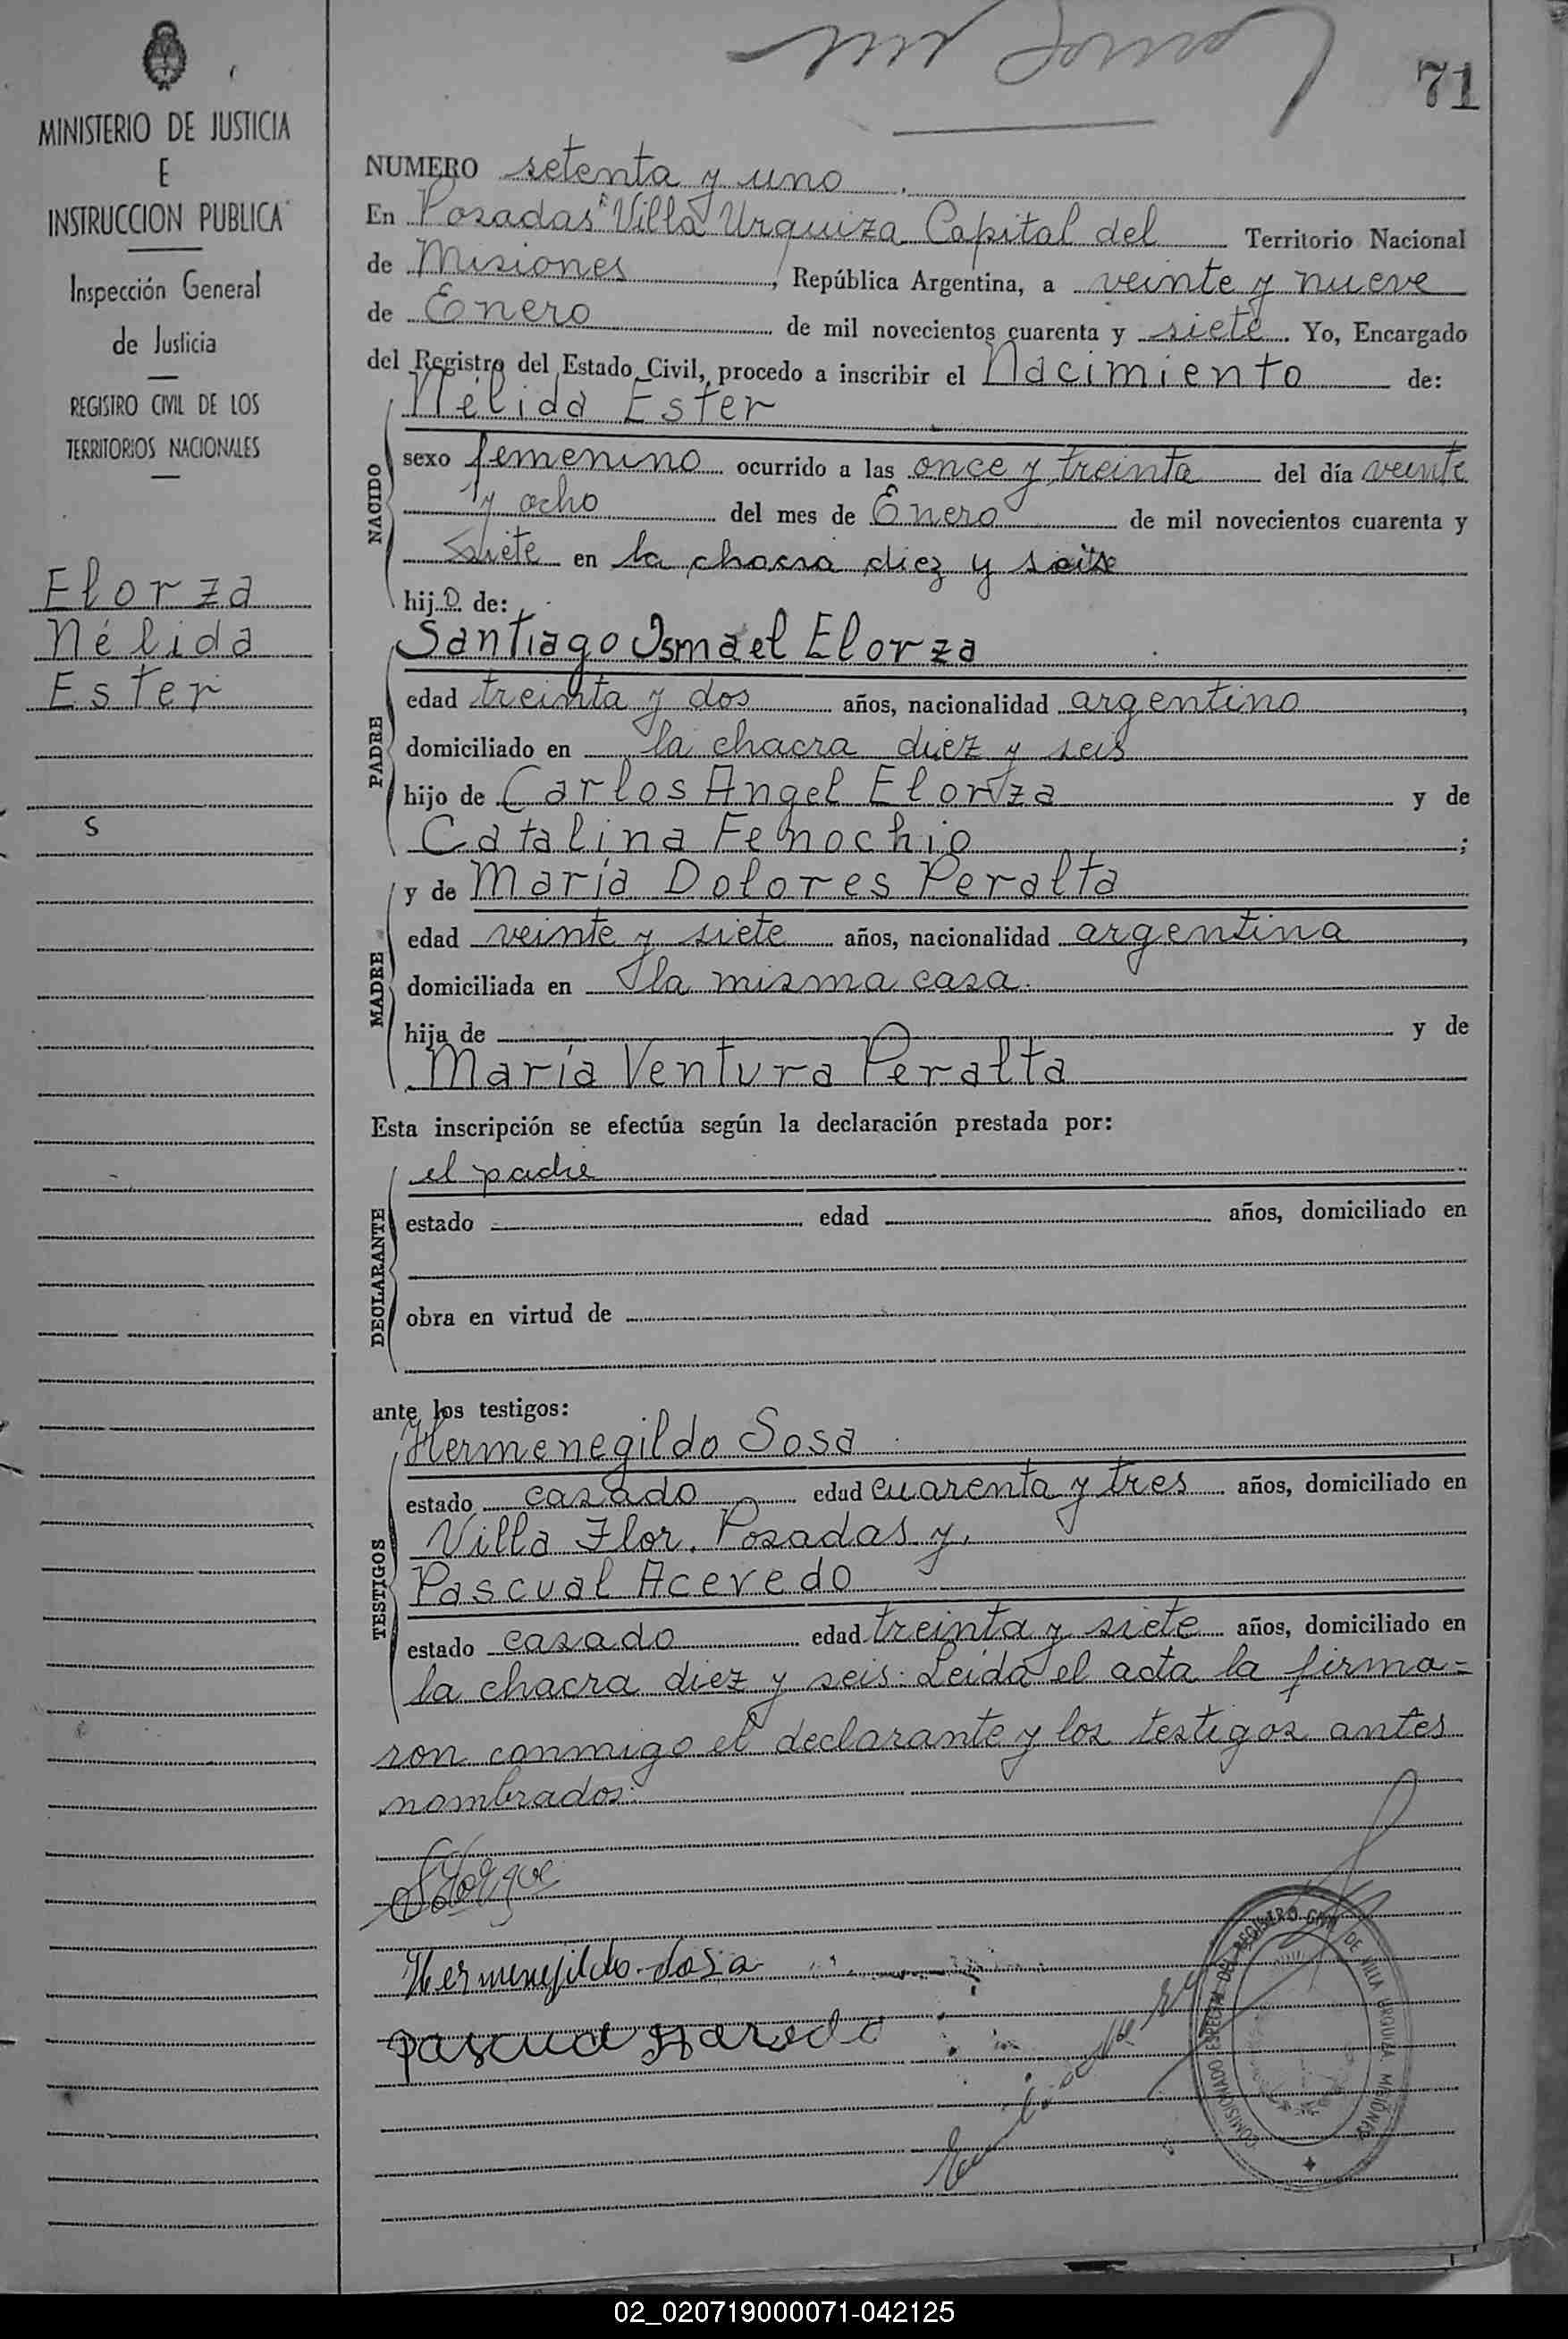 71
MINISTERIO DE JUSTICIA
E
INSTRUCCION PUBLICA
Inspección General
de Justicia
REGISTRO CIVIL DE LOS
TERRITORIOS NACIONALES
Elorza
Nélida
Ester
S
NUMERO setenta y uno.
En Posadas "Villa Urquiza Capital del Territorio Nacional
de Misiones, República Argentina, a veinte y nueve
de Enero de mil novecientos cuarenta y siete. Yo, Encargado
del Registro del Estado Civil, procedo a inscribir el Nacimiento de:
Nélida Ester
NACIDO
sexo femenino ocurrido a las once y treinta del día veinte
y ocho del mes de Enero de mil novecientos cuarenta y
siete en la chacra diez y seis
hija de:
Santiago Ismael Elorza
PADRE
edad treinta y dos años, nacionalidad argentino,
domiciliado en la chacra diez y seis
hijo de Carlos Angel Elorza y de
Catalina Fenochio;
y de María Dolores Peralta
MADRE
edad veinte y siete años, nacionalidad argentina,
domiciliada en la misma casa.
hija de y de
María Ventura Peralta
Esta inscripción se efectúa según la declaración prestada por:
el padre
DECLARANTE
estado edad años, domiciliado en
obra en virtud de
ante los testigos:
Hermenegildo Sosa
TESTIGOS
estado casado edad cuarenta y tres años, domiciliado en
Villa Flor. Posadas y,
Pascual Acevedo
estado casado edad treinta y siete años, domiciliado en
la chacra diez y seis: Leida el acta la firma=
ron conmigo el declarante y los testigos antes
nombrados:
Hermenejildo Sosa
COMISIONADO ESPECIAL DEL REGISTRO CIVIL DE VILLA URQUIZA MISIONES
02_020719000071-042125